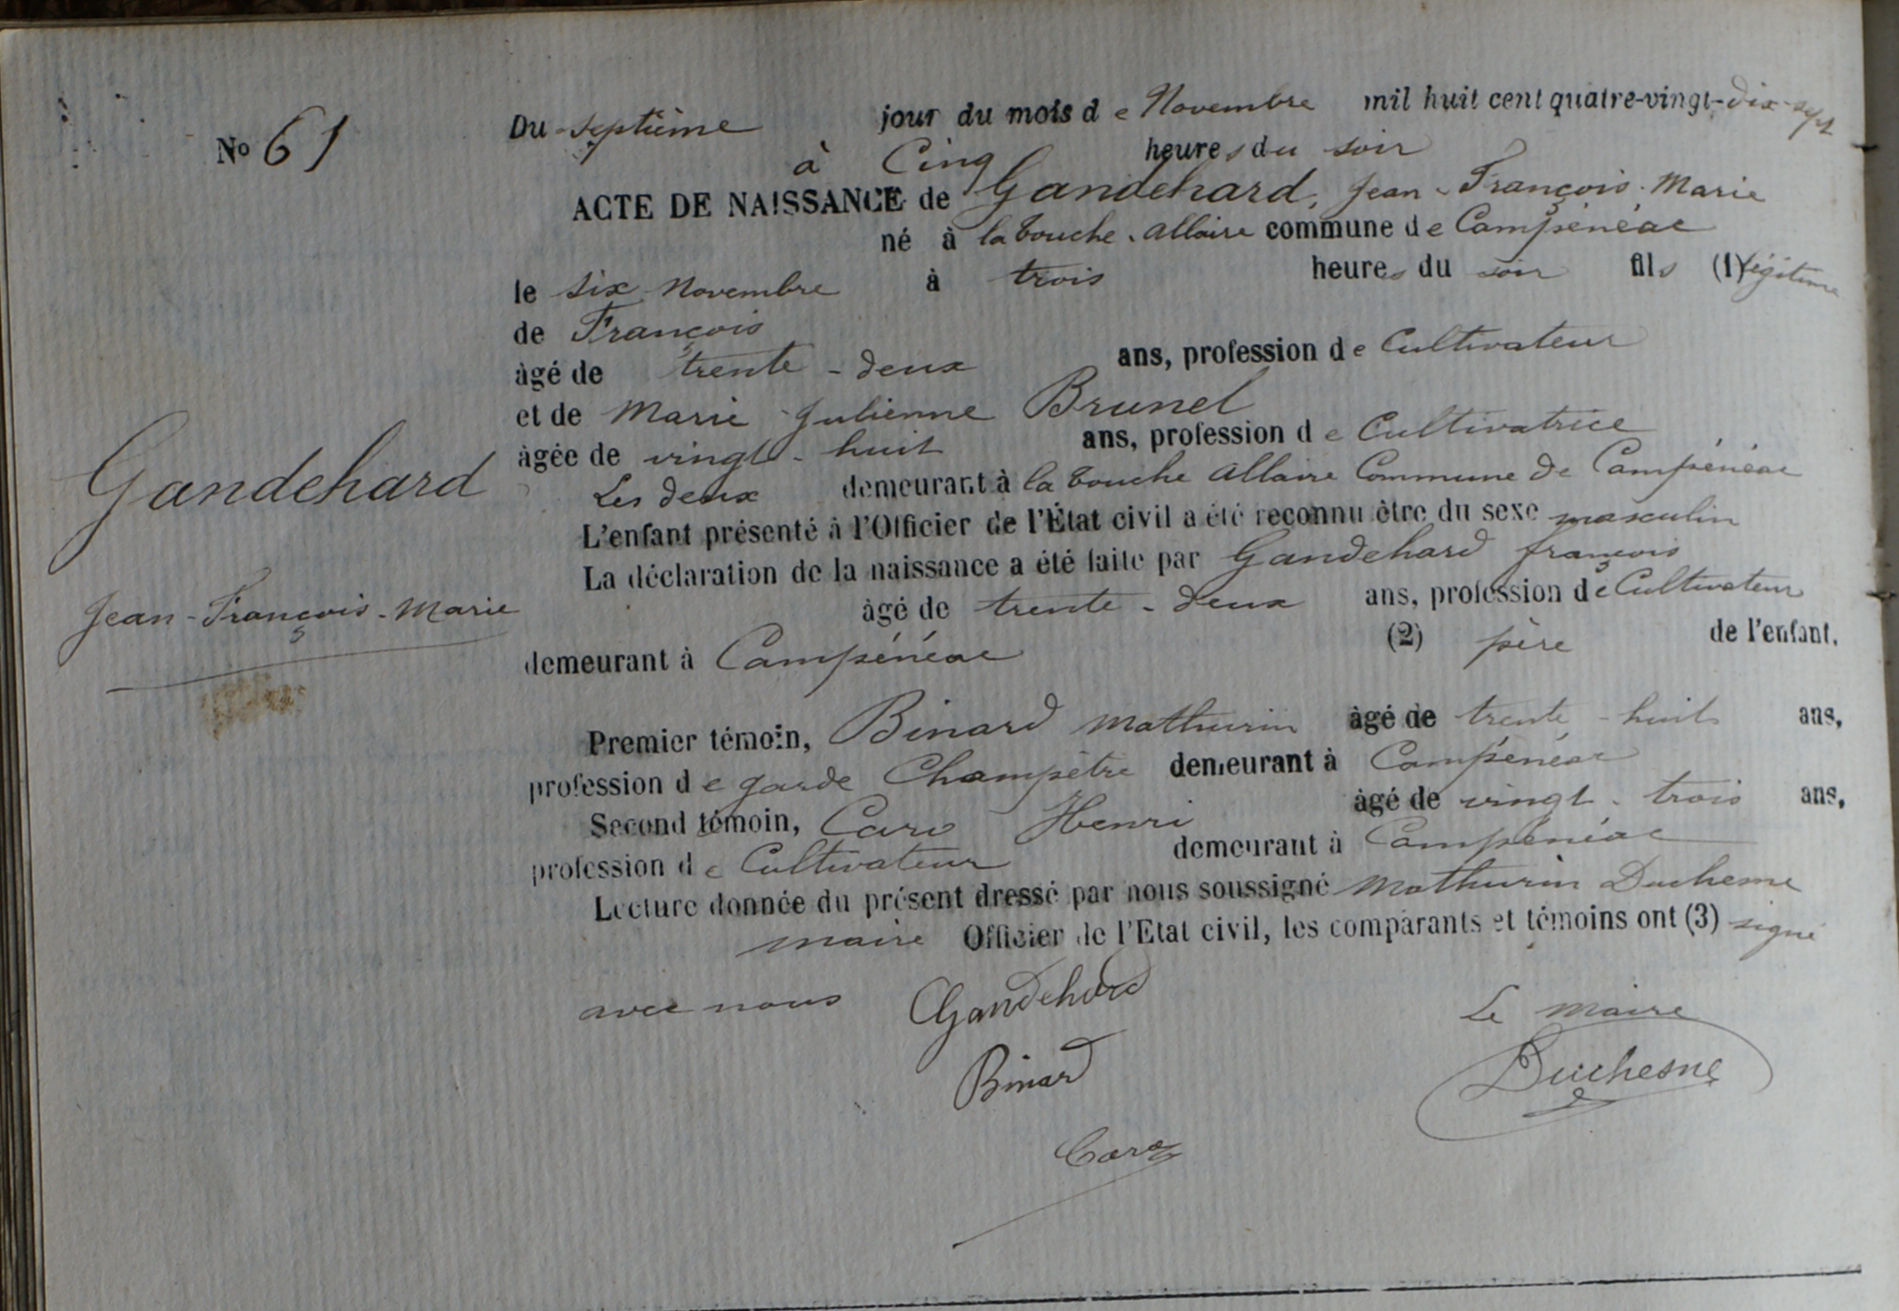 No 61
Du septième jour du mois de Novembre mil huit cent quatre-vingt-dix-sept
à Cinq heures du soir
ACTE DE NAISSANCE de Gandehard, Jean-François-Marie
né à la touche allaire commune de Campénéac
le six Novembre à trois heures du soir fils (1) légitime
de François
âgé de trente-deux ans, profession de Cultivateur
et de Marie Julienne Brunel
âgée de vingt-huit ans, profession de Cultivatrice
Les deux demeurant à la touche allaire Commune de Campénéac
L'enfant présenté à l'Officier de l'État civil a été reconnu être du sexe masculin
La déclaration de la naissance a été faite par Gandehard françois
âgé de trente-deux ans, profession de Cultivateur
demeurant à Campénéac (2) père de l'enfant.
Gandehard
Jean-François-Marie
Premier témoin, Binard Mathurin âgé de trente-huit ans,
profession de garde Champêtre demeurant à Campénéac
Second témoin, Caro Henri âgé de vingt-trois ans,
profession de Cultivateur demeurant à Campénéac
Lecture donnée du présent dressé par nous soussigné Mathurin Duchesne
maire Officier de l'Etat civil, les comparants et témoins ont (3) signé
avec nous Gandehard Le maire
Binard Duchesne
Caro